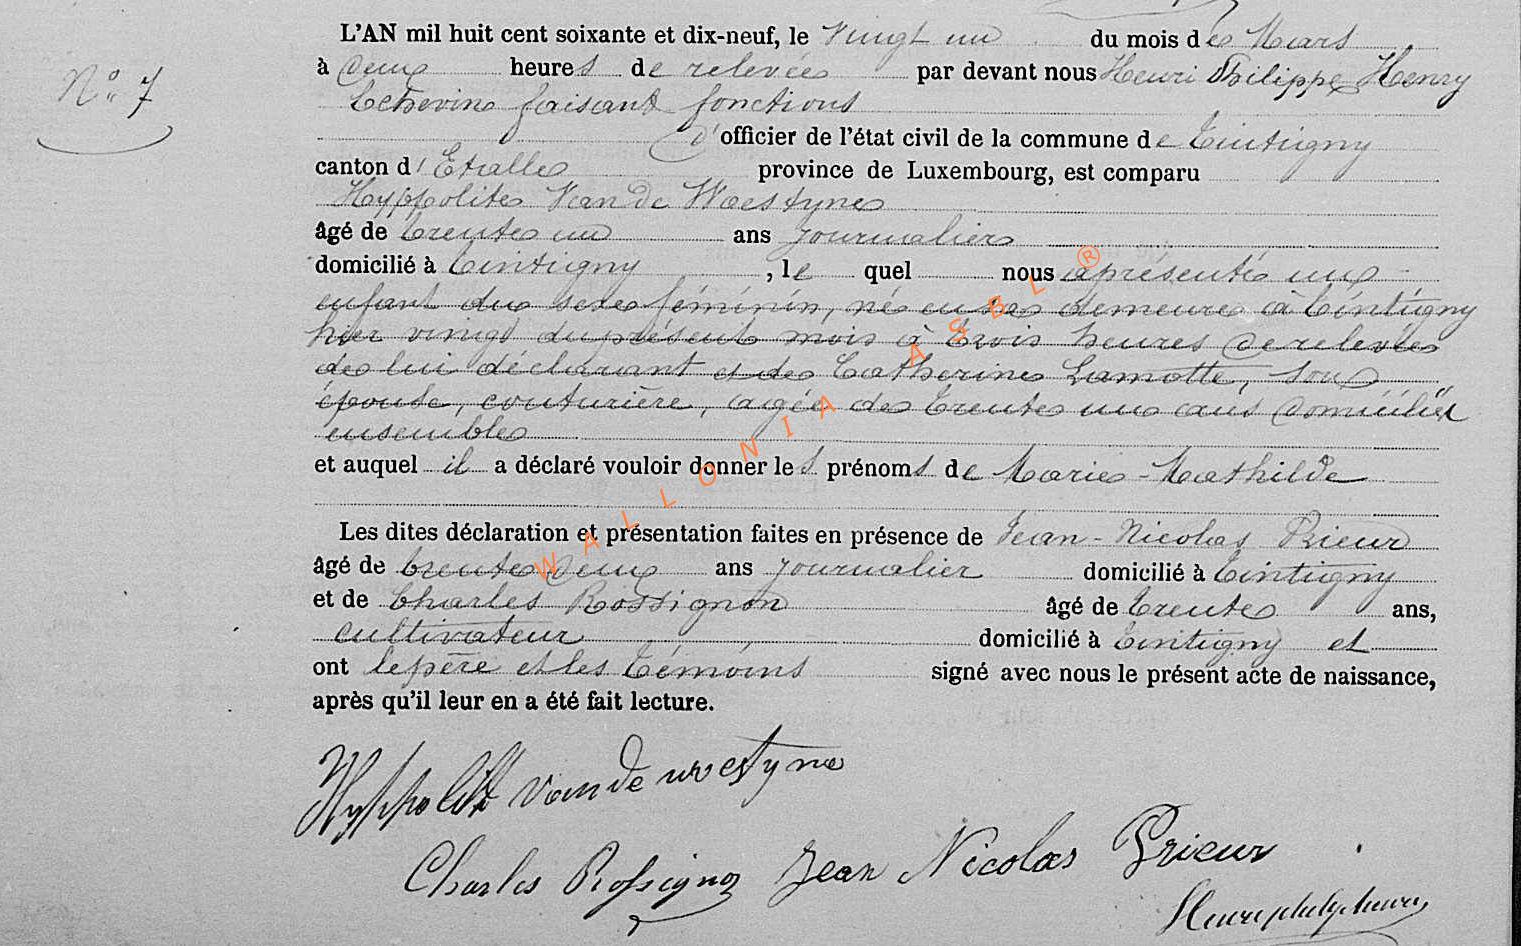 L'AN mil huit cent soixante et dix-neuf, le vingt un du mois de Mars
N° 7
à deux heures de relevée par devant nous Henri Philippe Henry
Echevin faisant fonctions
d'officier de l'état civil de la commune de Tintigny
canton d'Etalle province de Luxembourg, est comparu
Hyppolite Van de Waestyne
âgé de trente un ans journalier
domicilié à Tintigny, le quel nous a présenté un
enfant du sexe féminin, né en sa demeure à Tintigny
hier vingt du présent mois à trois heures de relevée
de lui déclarant et de Catherine Lamotte, son
épouse, couturière, agée de trente un ans domiciliés
ensemble
et auquel il a déclaré vouloir donner les prénoms de Marie-Mathilde
Les dites déclaration et présentation faites en présence de Jean-Nicolas Prieur
âgé de trente deux ans journalier domicilié à Tintigny
et de Charles Rossignon âgé de trente ans,
cultivateur domicilié à Tintigny et
ont le père et les témoins signé avec nous le présent acte de naissance,
après qu'il leur en a été fait lecture.
Hyppolite Van de westyne
Charles Rossignon Jean Nicolas Prieur
WALLONIA ASBL ®